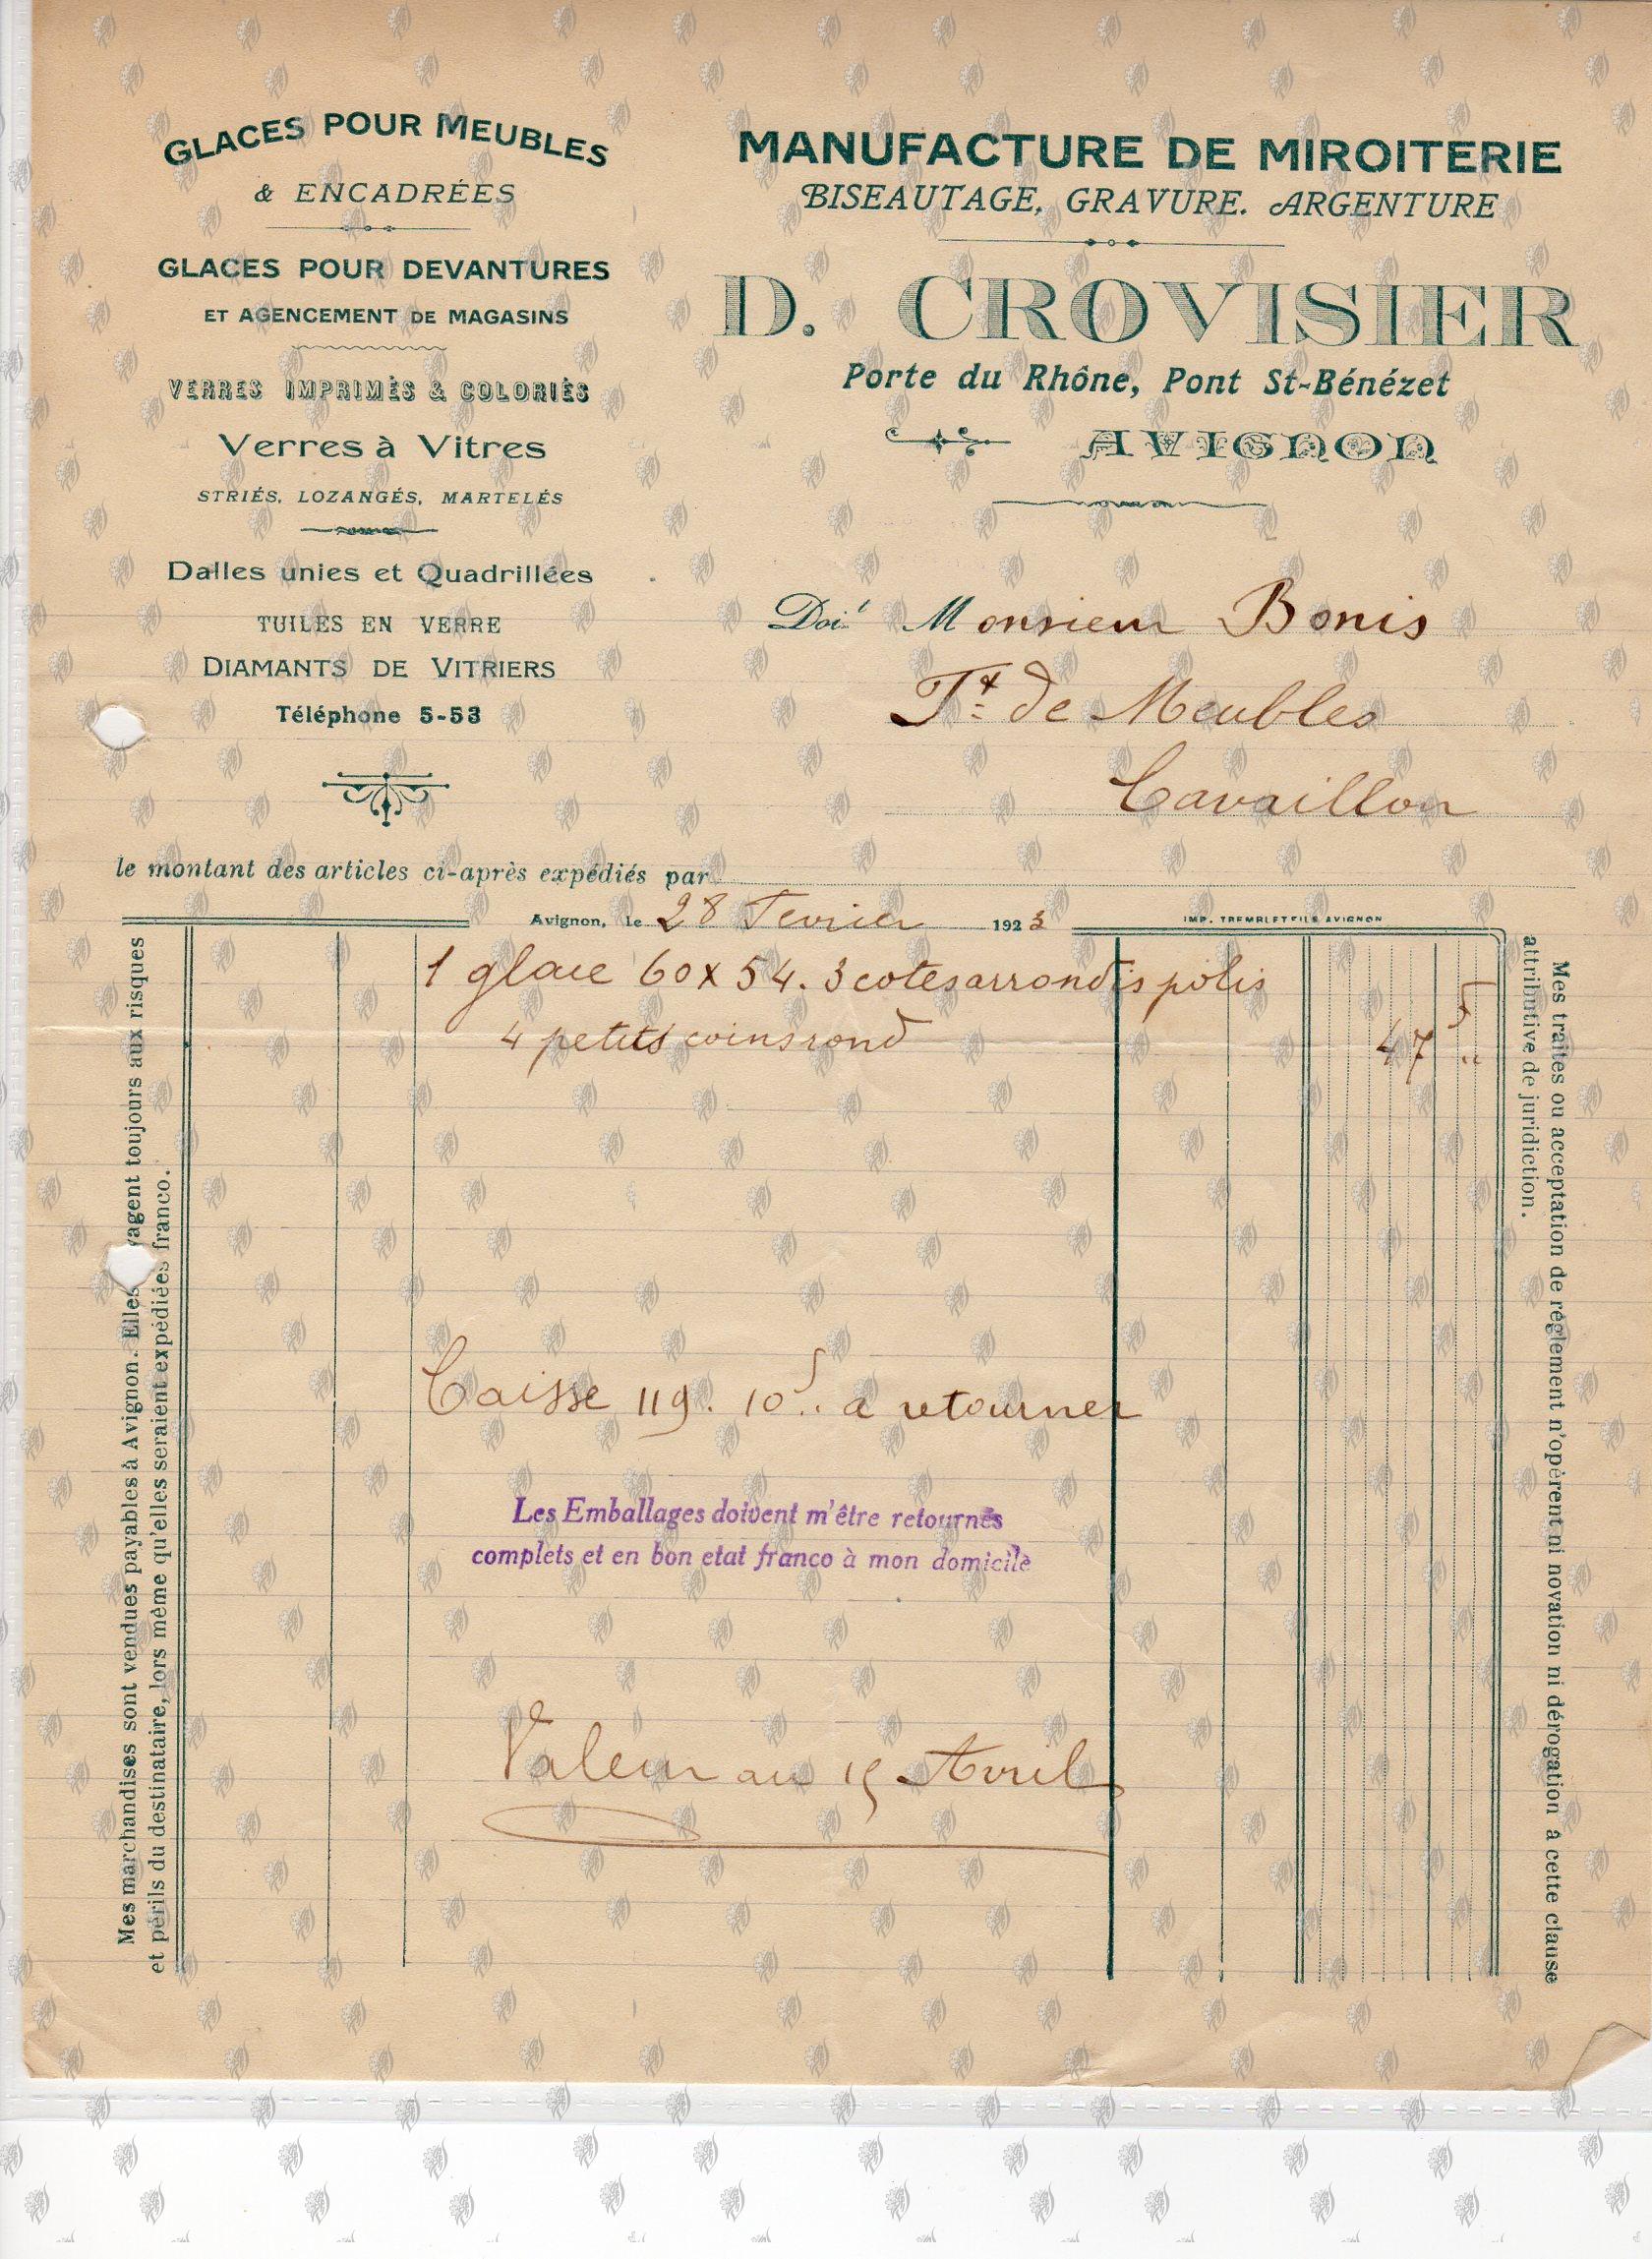 GLACES POUR MEUBLES
& ENCADRÉES
GLACES POUR DEVANTURES
ET AGENCEMENT DE MAGASINS
VERRES IMPRIMÉS & COLORIÉS
Verres à Vitres
STRIÉS, LOZANGÉS, MARTELÉS
Dalles unies et Quadrillées
TUILES EN VERRE
DIAMANTS DE VITRIERS
Téléphone 5-53
MANUFACTURE DE MIROITERIE
BISEAUTAGE, GRAVURE. ARGENTURE
D. CROVISIER
Porte du Rhône, Pont St-Bénézet
AVIGNON
Doit Monsieur Bonis
Ft de Meubles
Cavaillon
le montant des articles ci-après expédiés par
Avignon, le 28 Fevrier 1923
IMP. TREMBLET FILS AVIGNON
1 glace 60x54. 3 cotes arrondis polis
4 petits coins rond 47
Caisse 119. 10 a retourner
Les Emballages doivent m'être retournés
complets et en bon etat franco à mon domicile
Valeur au 15 Avril
Mes marchandises sont vendues payables à Avignon. Elles voyagent toujours aux risques
et périls du destinataire, lors même qu'elles seraient expédiées franco.
Mes traites ou acceptation de réglement n'opèrent ni novation ni dérogation à cette clause
attributive de juridiction.